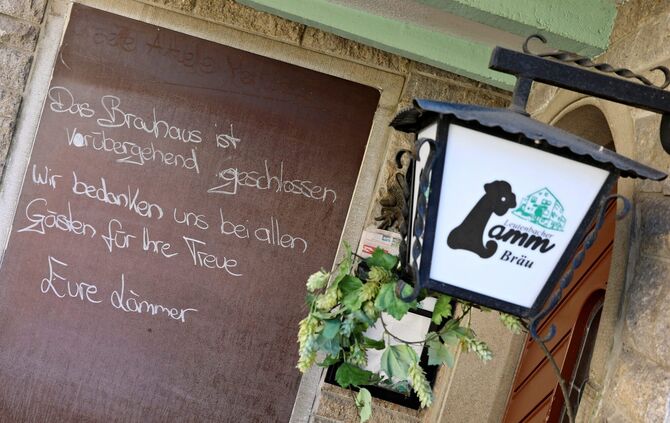 Das Brauhaus ist
vorübergehend geschlossen
Wir bedanken uns bei allen
Gästen für Ihre Treue
Eure Lämmer
Leutenbacher
Lamm
Bräu